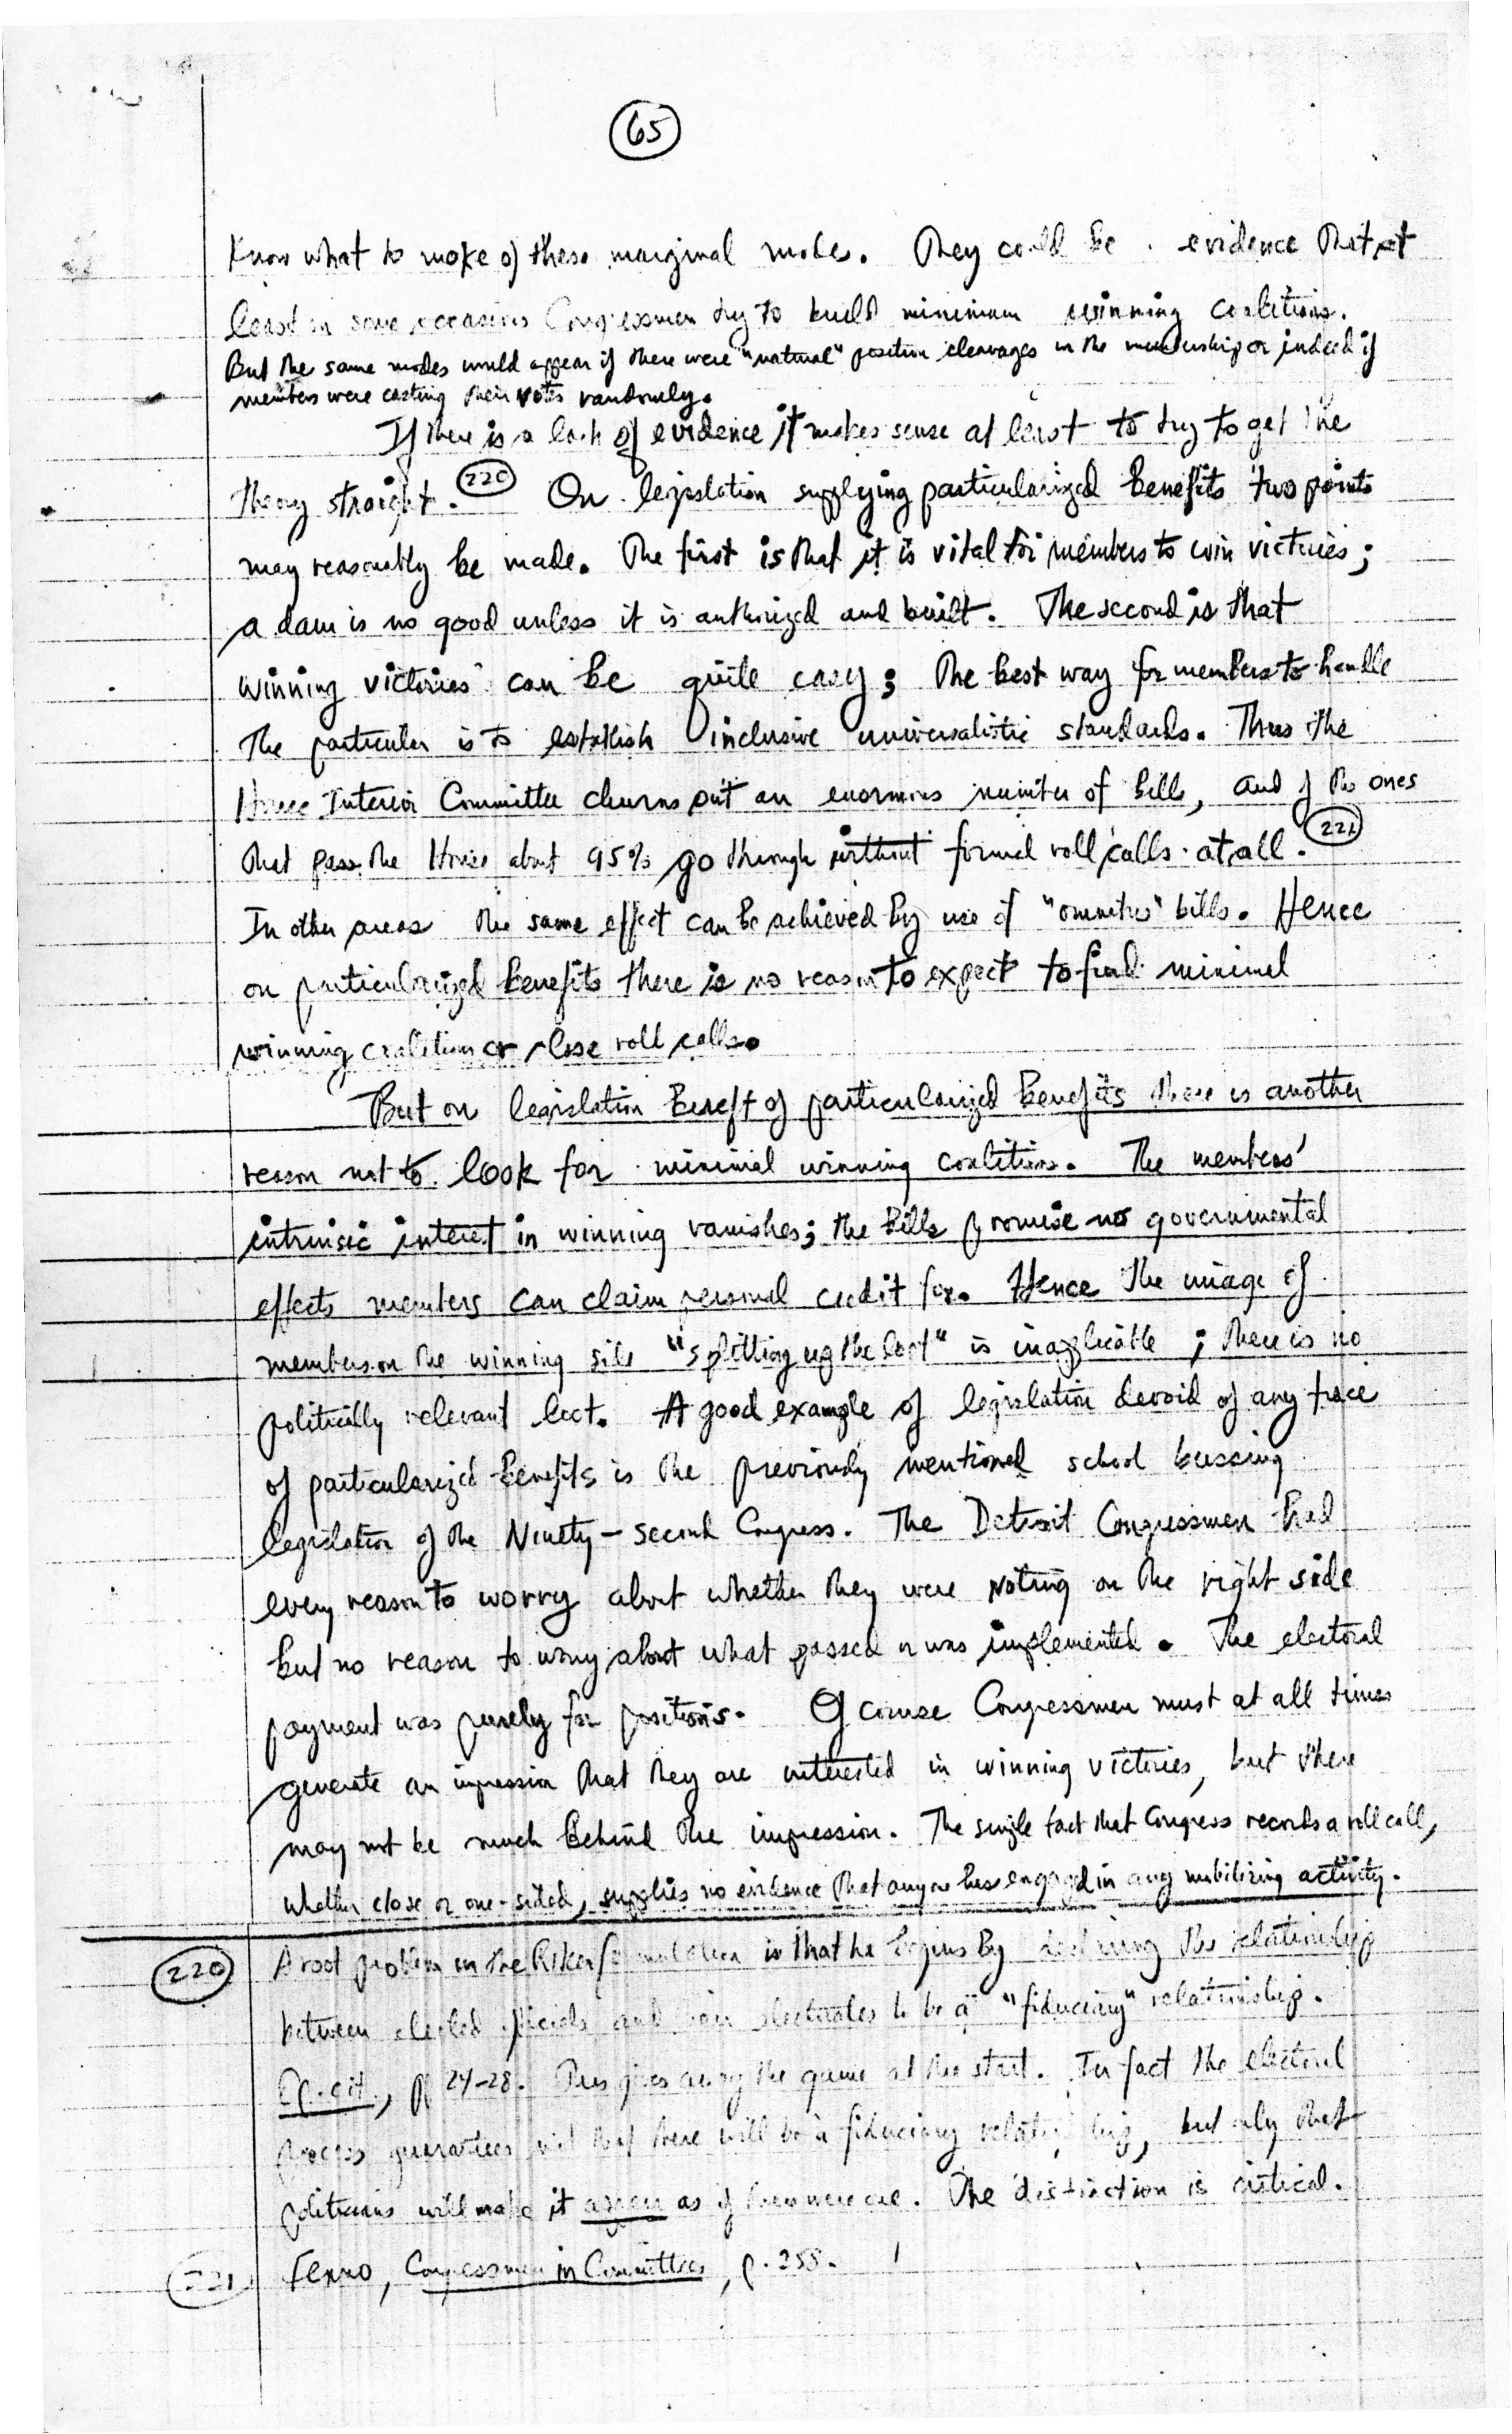 65
Know what to make of these marginal modes. They could be evidence that at
least on some occasions Congressmen try to build minimum winning coalitions.
But the same modes would appear if there were "natural" position cleavages in the membership or indeed if
members were casting their votes randomly.
If there is a lack of evidence it makes sense at least to try to get the
theory straight. 220 On legislation supplying particularized benefits two points
may reasonably be made. The first is that it is vital for members to win victories;
a dam is no good unless it is authorized and built. The second is that
winning victories can be quite easy; the best way for members to handle
the particular is to establish inclusive universalistic standards. Thus the
House Interior Committee churns out an enormous number of bills, and of the ones
that pass the House about 95% go through without formal roll calls at all. 221
In other areas the same effect can be achieved by use of "omnibus" bills. Hence
on particularized benefits there is no reason to expect to find minimal
winning coalition or close roll calls.
But on legislation bereft of particularized benefits there is another
reason not to look for minimal winning coalitions. The members'
intrinsic interest in winning vanishes; the bills promise no governmental
effects members can claim personal credit for. Hence the image of
members on the winning side "splitting up the loot" is inapplicable; there is no
politically relevant loot. A good example of legislation devoid of any trace
of particularized benefits is the previously mentioned school bussing
legislation of the Ninety-second Congress. The Detroit Congressmen had
every reason to worry about whether they were voting on the right side
but no reason to worry about what passed or was implemented. The electoral
payment was purely for positions. Of course Congressmen must at all times
generate an impression that they are interested in winning victories, but there
may not be much behind the impression. The single fact that Congress records a roll call,
whether close or one-sided, supplies no evidence that anyone has engaged in any mobilizing activity.
220 A root problem in the Riker formulation is that he begins by declaring the relationship
between elected officials and their electorates to be a "fiduciary" relationship.
Op. cit., pp 24-28. This gives away the game at the start. In fact the electoral
process guarantees not that there will be a fiduciary relationship, but only that
politicians will make it appear as if there were one. The distinction is critical.
221 Fenno, Congressmen in Committees, p. 258.